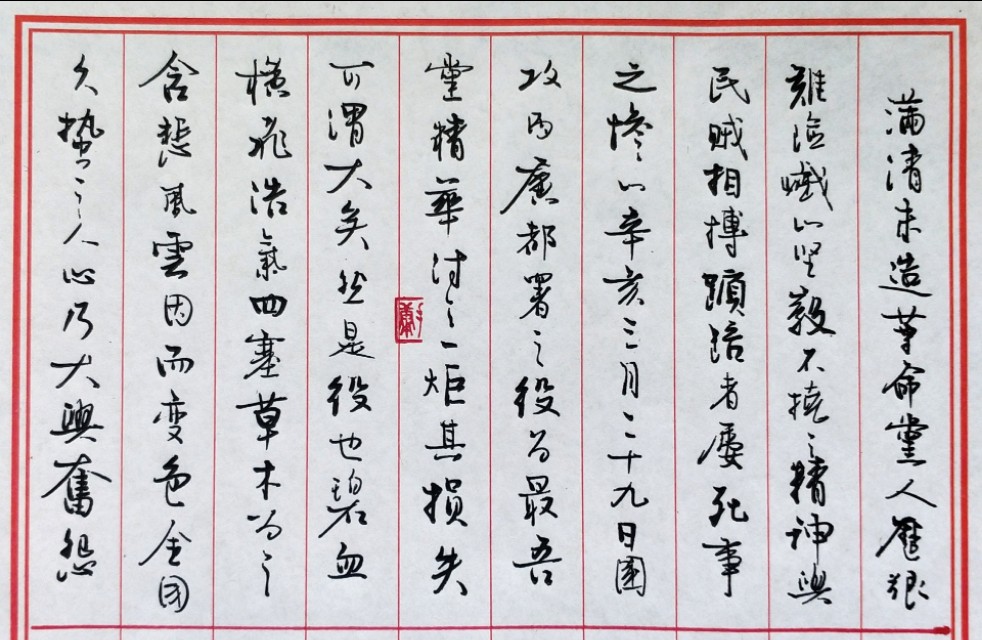 滿清末造革命黨人歷艰
難險巇以坚毅不撓之精神與
民贼相搏躓踣者屢死事
之惨以辛亥三月二十九日圍
攻两廣都署之役为最吾
黨精華付之一炬其損失
可謂大矣然是役也碧血
横飛浩氣四塞草木为之
含悲風雲因而变色全国
久蛰之人心乃大興奮怨